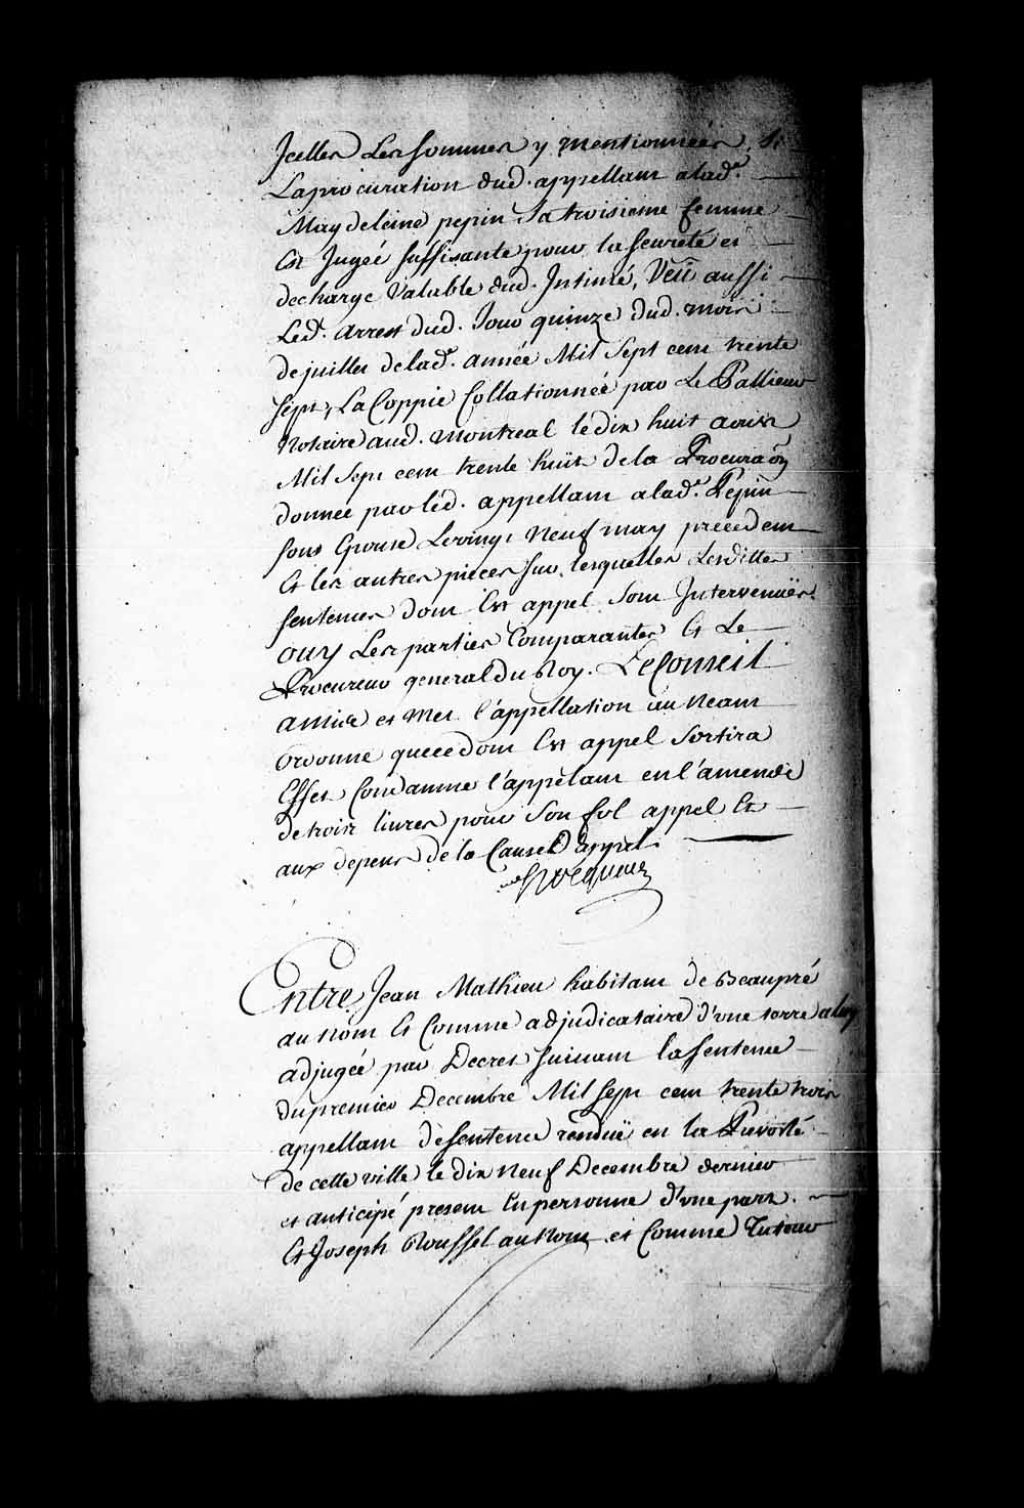 Jcelles Les sommes y mentionnées, Si
La procuration dud. appellant a lad.e
Magdeleine pepin Sa troisieme femme
Est Jugée suffisante pour la seureté et
decharge Valable dud. Intimé, Veü aussi
Led. arrest dud. Jour quinze dud. mois
de juillet de lad.e année Mil Sept cent trente
sept, La Coppie Collationnée par Le Pallieur
Notaire aud. Montreal le dix huit aoust
Mil Sept cent trente huit de la Procura͠on
donnée par led. appellant a lad.e Pepin
sons Epouse Le vingt neuf may precedent
Et les autres pieces sur lesquelles Lesdittes
sentences dont Est appel Sont Intervenües
ouy Les parties Comparantes Et Le
Procureur general du Roy. Le Conseil
a mis et Met l'appellation au Neant
ordonne que ce dont Est appel Sortira
Effet Condamne l'appelant en l'amende
de trois livres pour Son fol appel Et
aux depens de la Cause D'appel.
Hocquart

Entre Jean Mathieu habitant de Beaupré
au Nom Et Comme adjudicataire d'une terre a luy
adjugée par Decret suivant la sentence
du premier Decembre Mil sept cent trente trois
appellant de sentence rendüe en la Prevosté
de cette ville le dix neuf Decembre dernier
et anticipé present En personne d'une part.
Et Joseph Roussel au Nom et Comme Tuteur